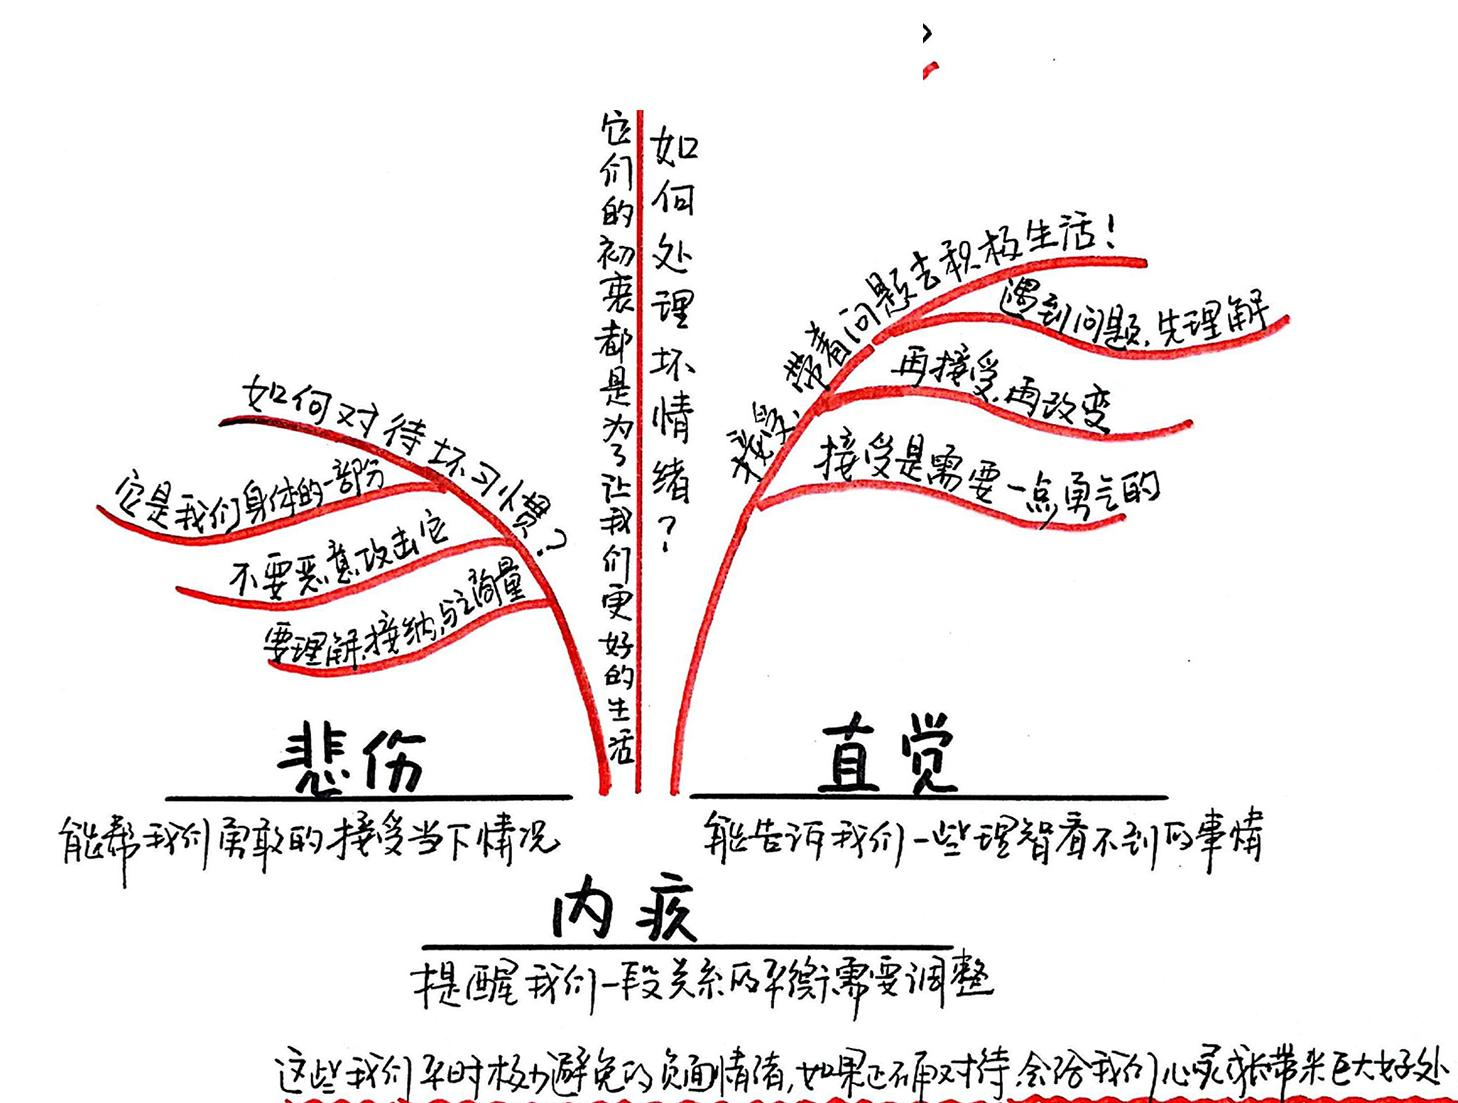 它们的初衷都是为了让我们更好的生活
如何处理坏情绪？
如何对待坏习惯？
它是我们身体的一部份
不要恶意攻击它
要理解,接纳,与之商量
接受,带着问题去积极生活！
遇到问题,先理解
再接受,再改变
接受是需要一点勇气的
悲伤
能帮我们勇敢的接受当下情况
直觉
能告诉我们一些理智看不到的事情
内疚
提醒我们一段关系的平衡需要调整
这些我们平时极力避免的负面情绪,如果正确对待,会给我们心灵成长带来巨大好处